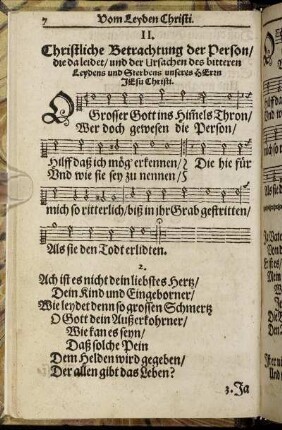 7 Vom Leyden Christi.
II.
Christliche Betrachtung der Person/
die da leidet/ und der Ursachen des bitteren
Leydens und Sterbens unseres HErrn
JEsu Christi.
O Grosser Gott ins Him̃els Thron/
Wer doch gewesen die Person/
Hilff daß ich mög' erkennen/ Die hie für
Und wie sie sey zu nennen/
mich so ritterlich/ biß in ihr Grab gestritten/
Als sie den Todt erlidten.
2.
Ach ist es nicht dein liebstes Hertz/
Dein Kind und Eingeborner/
Wie leydet denn so grossen Schmertz
O Gott dein Außerkohrner/
Wie kan es seyn/
Daß solche Pein
Dem Helden wird gegeben/
Der allen gibt das Leben?
3. Ja